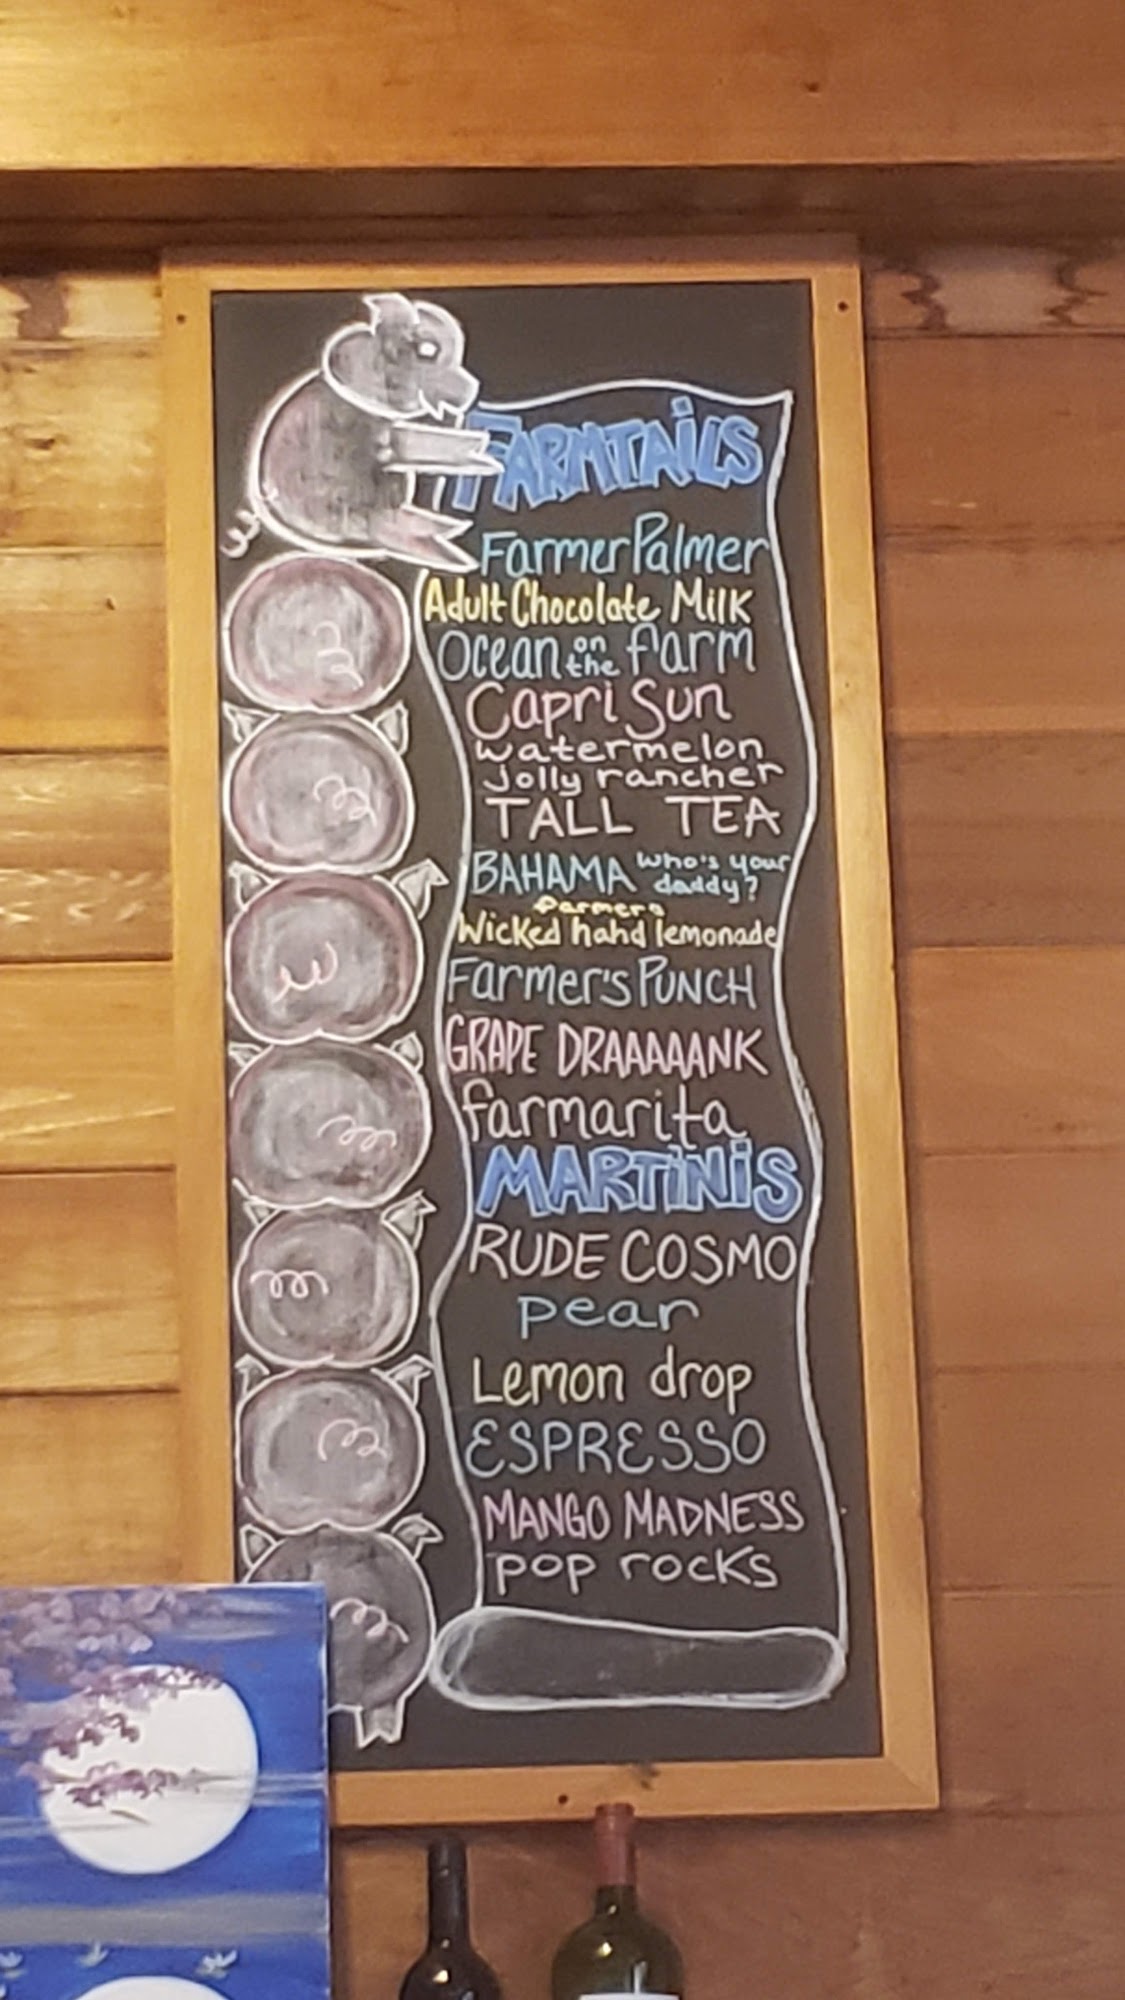 FARMTAiLS
Farmer Palmer
Adult Chocolate Milk
Ocean on the farm
Capri Sun
watermelon
jolly rancher
TALL TEA
BAHAMA who's your daddy?
farmers
Wicked hahd lemonade
Farmer's PUNCH
GRAPE DRAAAAANK
farmarita
MARTiNiS
RUDE COSMO
pear
Lemon drop
ESPRESSO
MANGO MADNESS
pop rocks